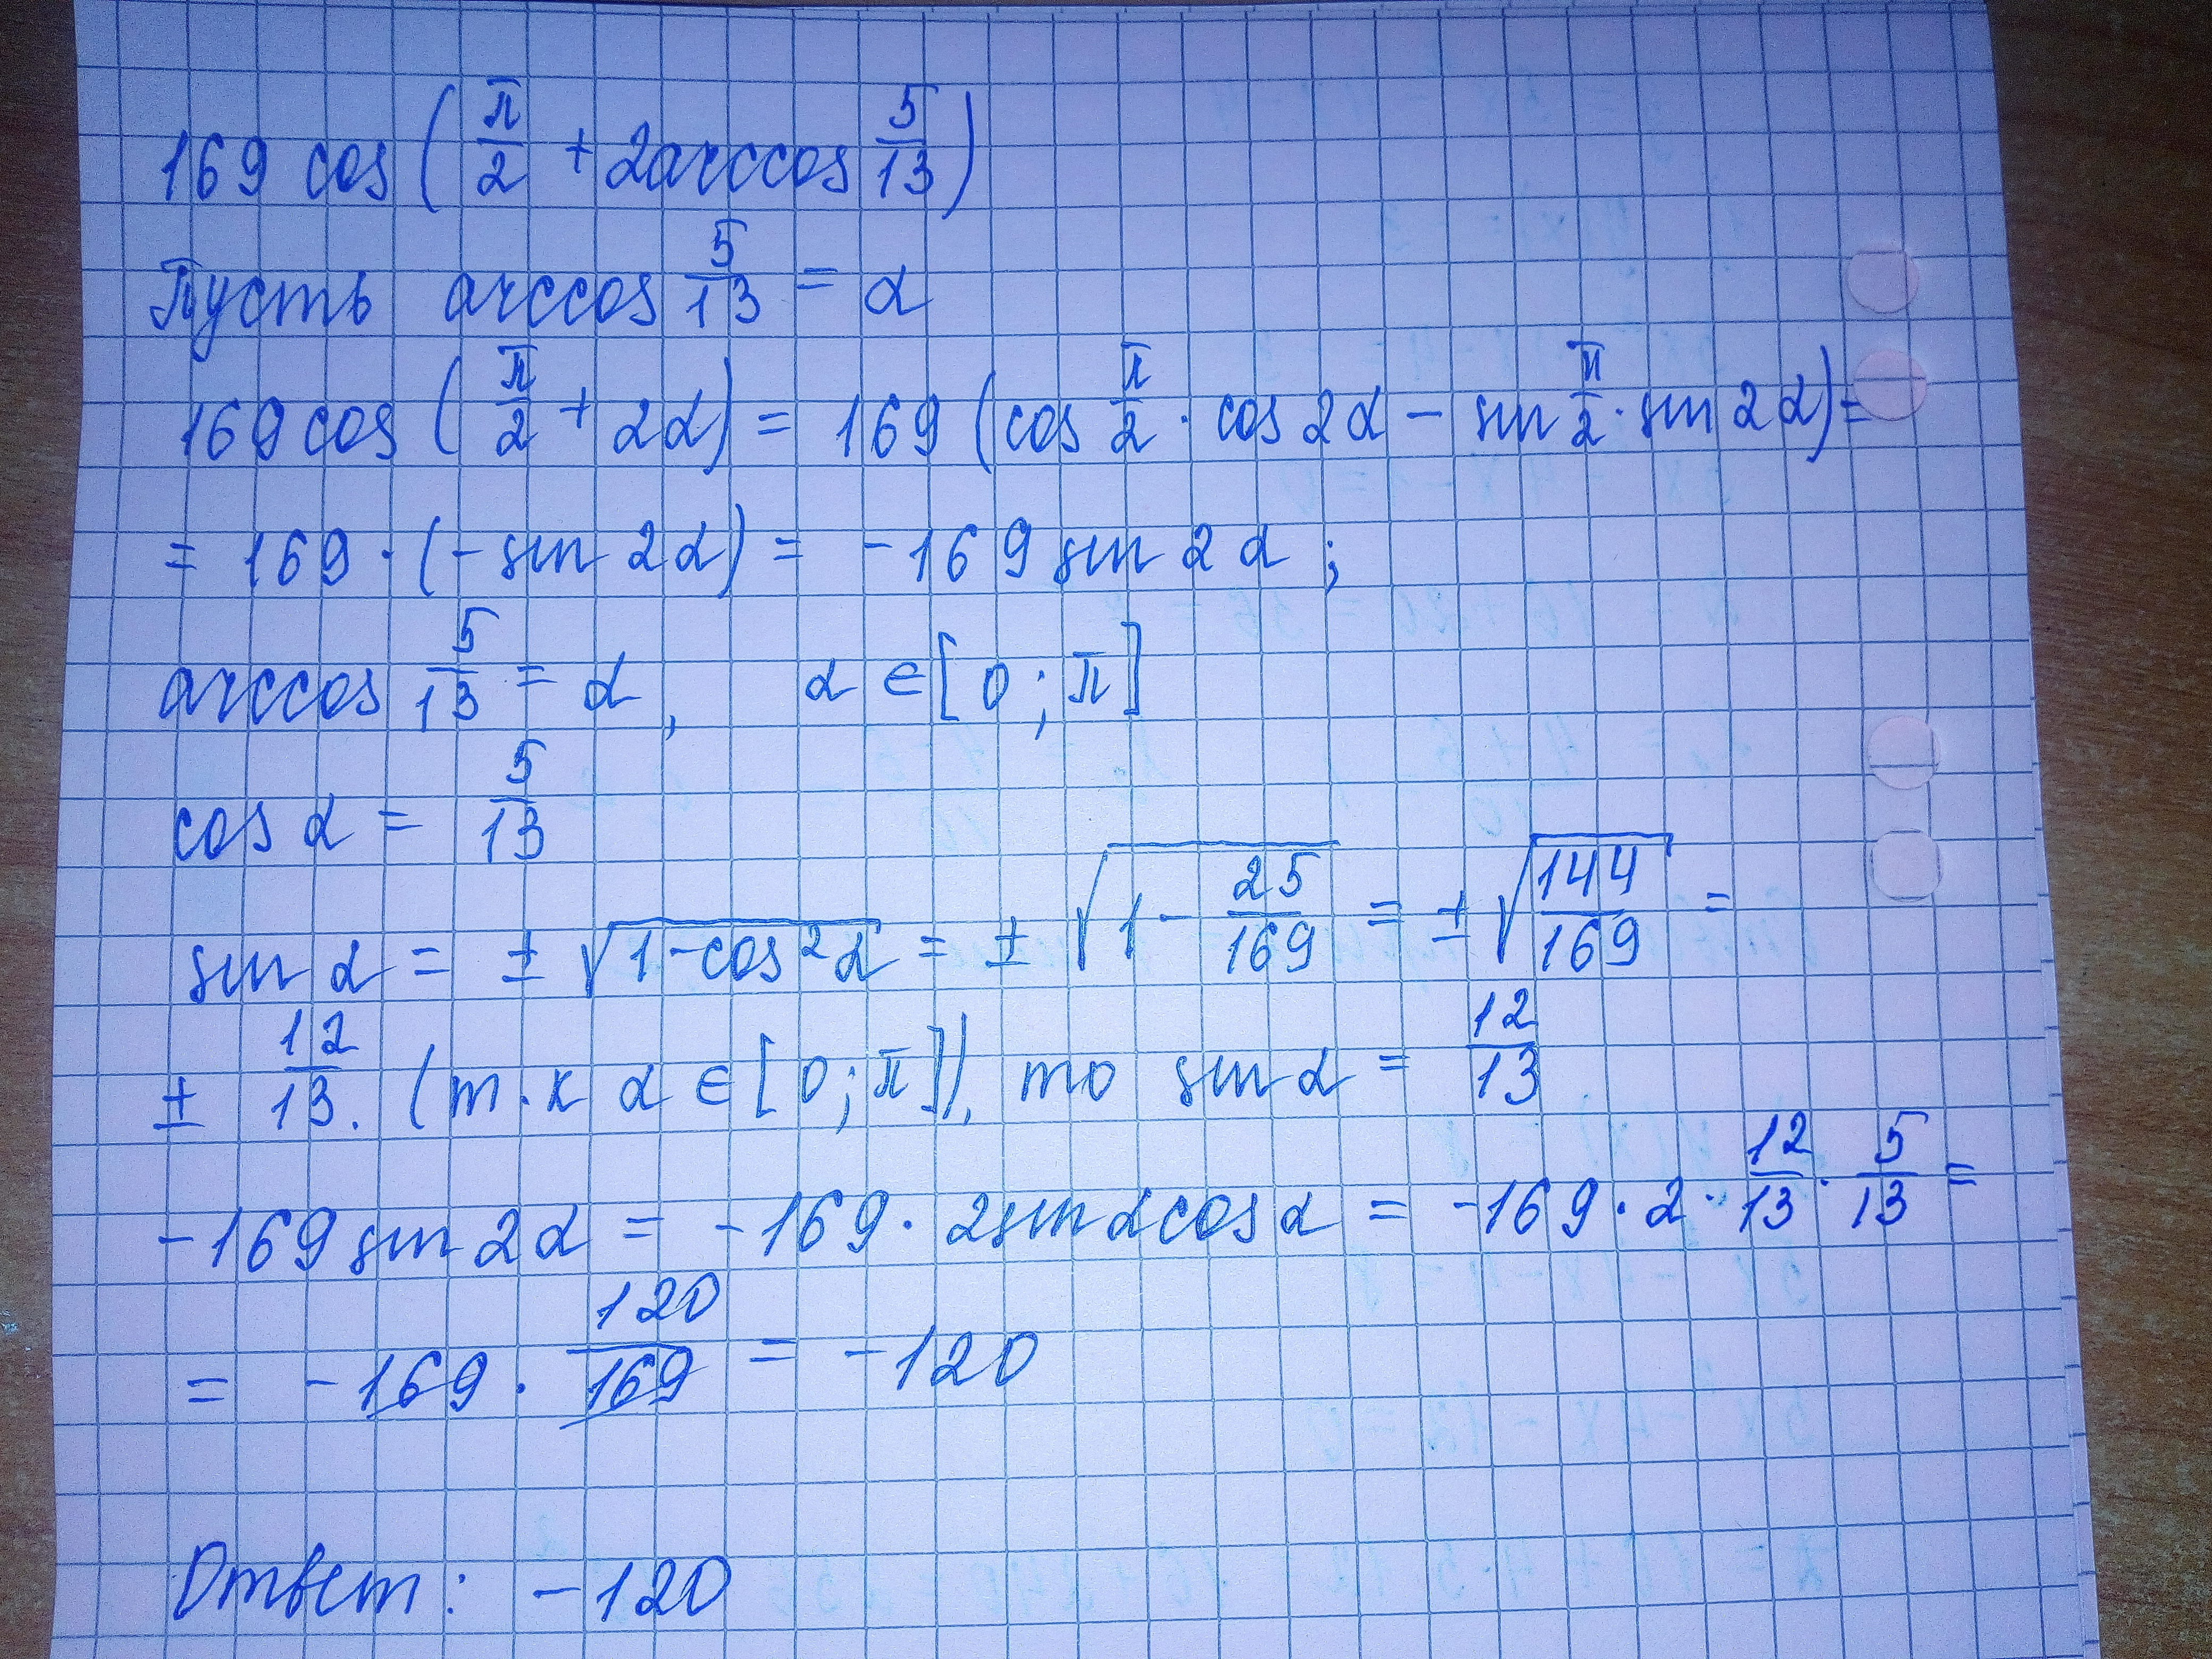 169 cos(π/2 + 2arccos 5/13)
Пусть arccos 5/13 = α
169 cos(π/2 + 2α) = 169(cos π/2 · cos 2α − sin π/2 · sin 2α) =
= 169 · (− sin 2α) = −169 sin 2α ;
arccos 5/13 = α, α ∈ [0; π]
cos α = 5/13
sin α = ± √(1−cos²α) = ± √(1 − 25/169) = ± √(144/169) =
± 12/13. (т.к α ∈ [0; π]), то sin α = 12/13
−169 sin 2α = −169 · 2sin α cos α = −169 · 2 · 12/13 · 5/13 =
= −169 · 120/169 = −120
Ответ: −120